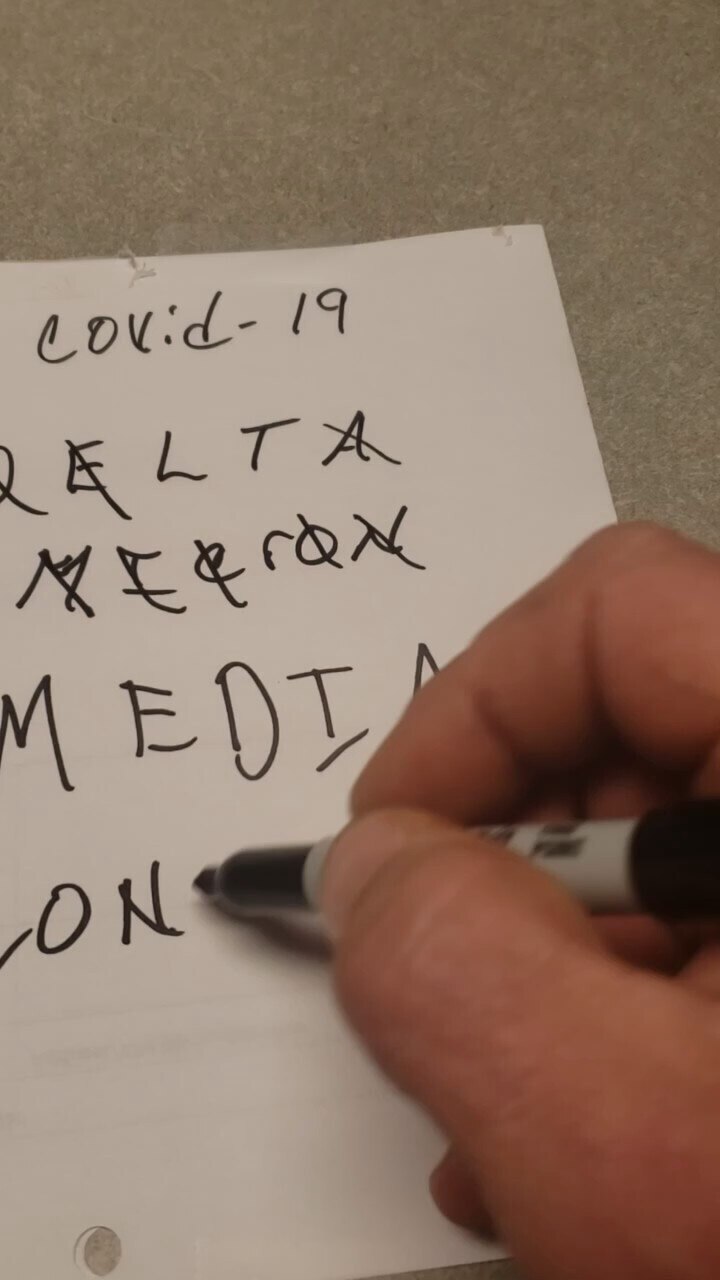 covid-19
DELTA
MEcrON
MEDIA
CON